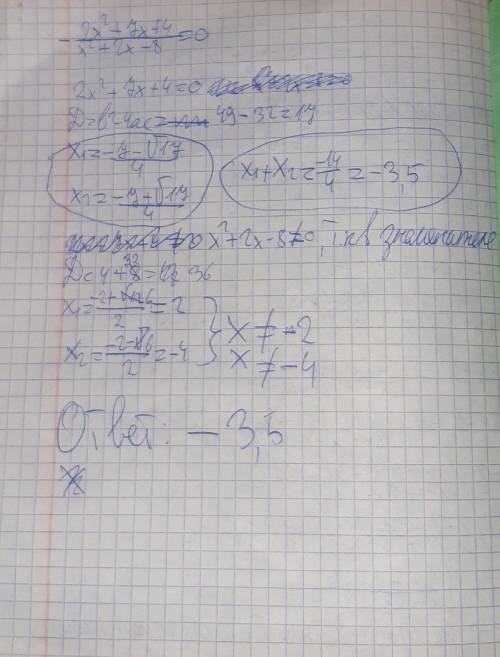 - (2x²+7x+4)/(x²+2x-8) =0
2x²+7x+4=0
D=b²-4ac= 49-32=17
x₁= (-7-√17)/4
x₂= (-7+√17)/4
x₁+x₂= -14/4 =-3,5
x²+2x-8≠0, т.к в знаменателе
D=4+32= 36
x₁= (-2+6)/2 =2
x₂= (-2-6)/2 =-4
x≠-2
x≠-4
Ответ: -3,5